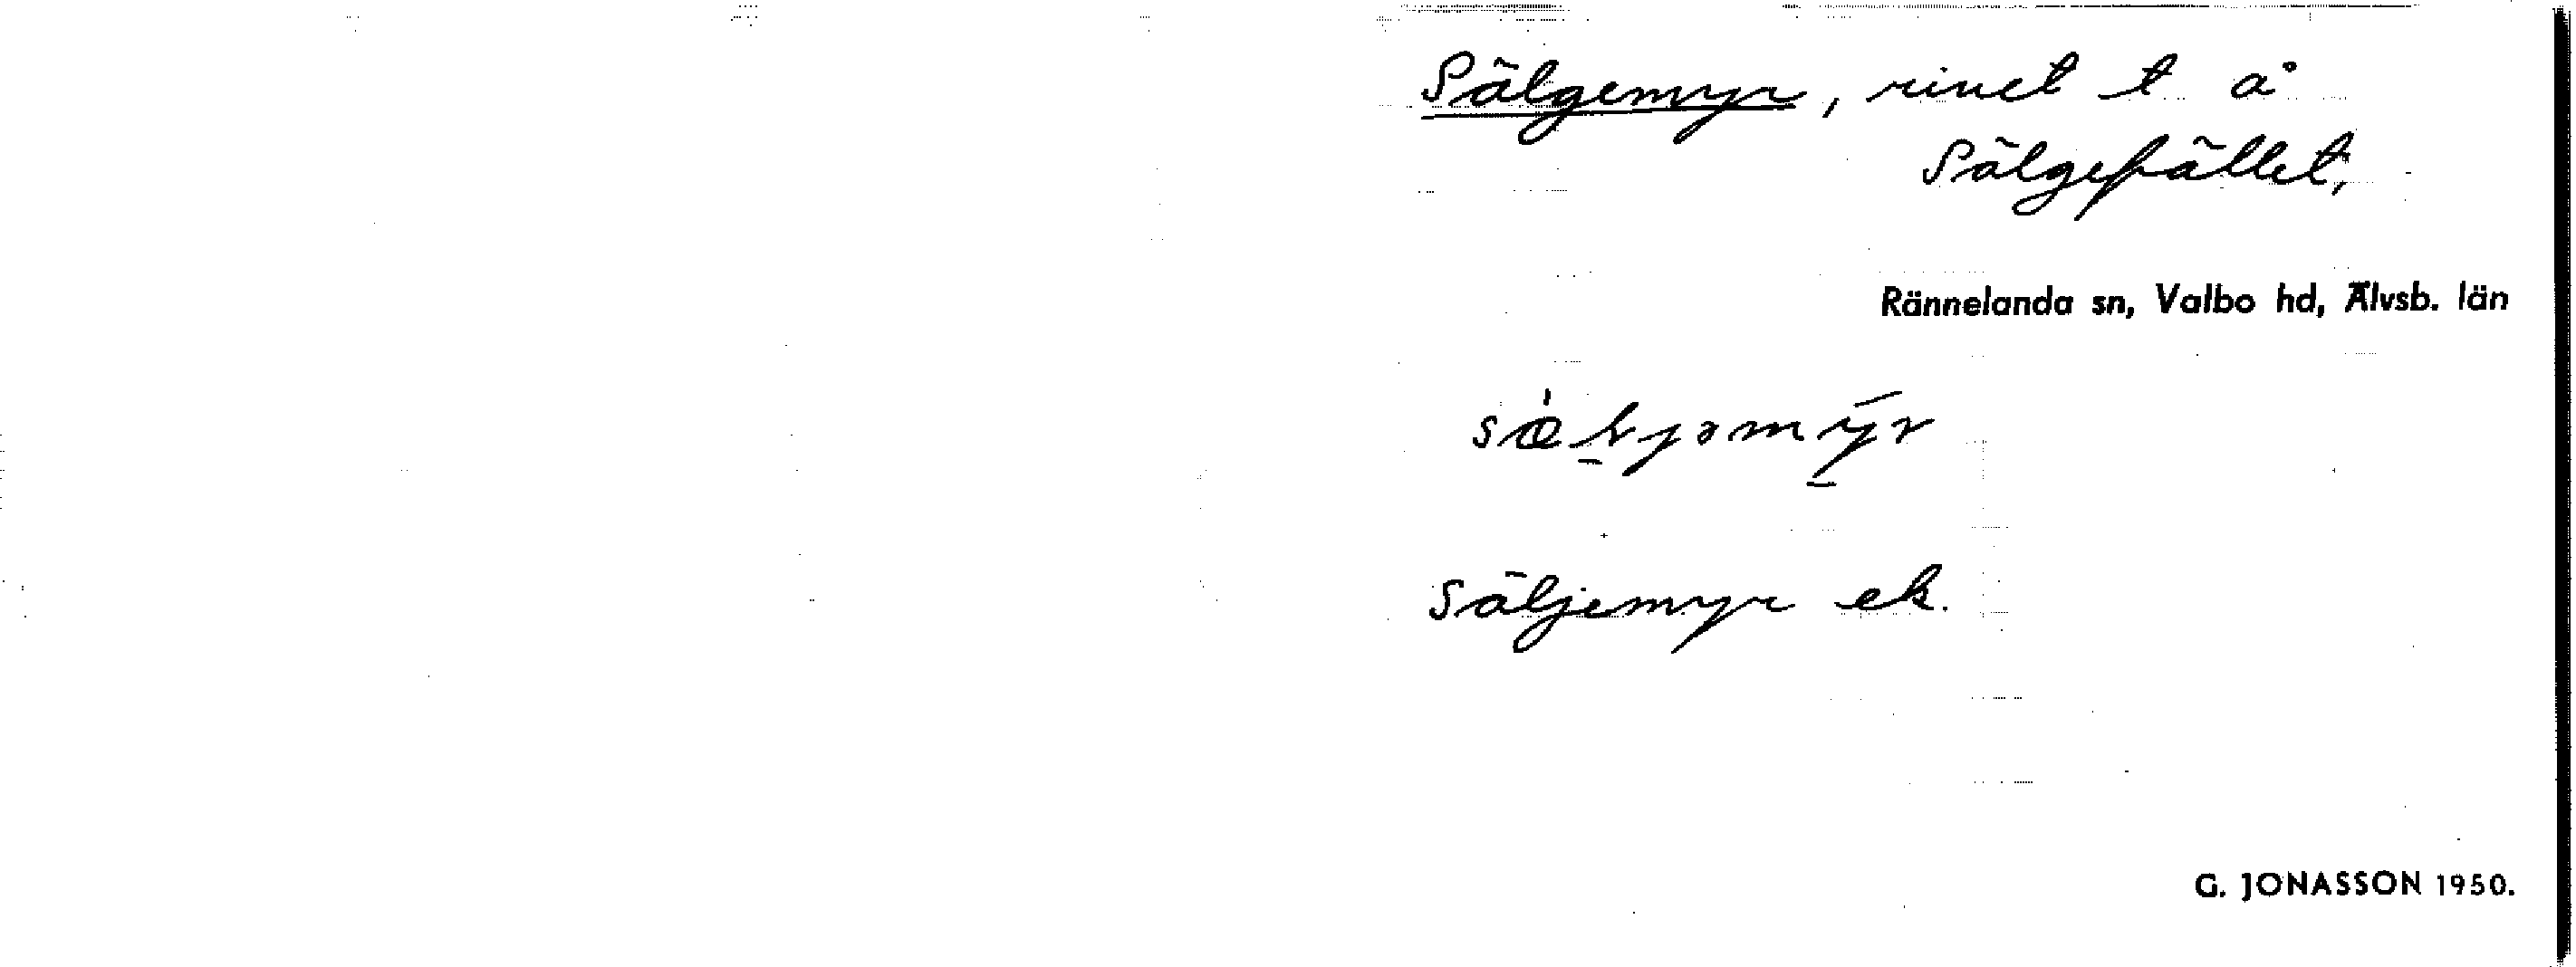 Sälgemyr, rinet t å
Sälgefället,
Rännelanda sn, Valbo hd, Älvsb. län
Säljemyr ek.
G. JONASSON 1950.